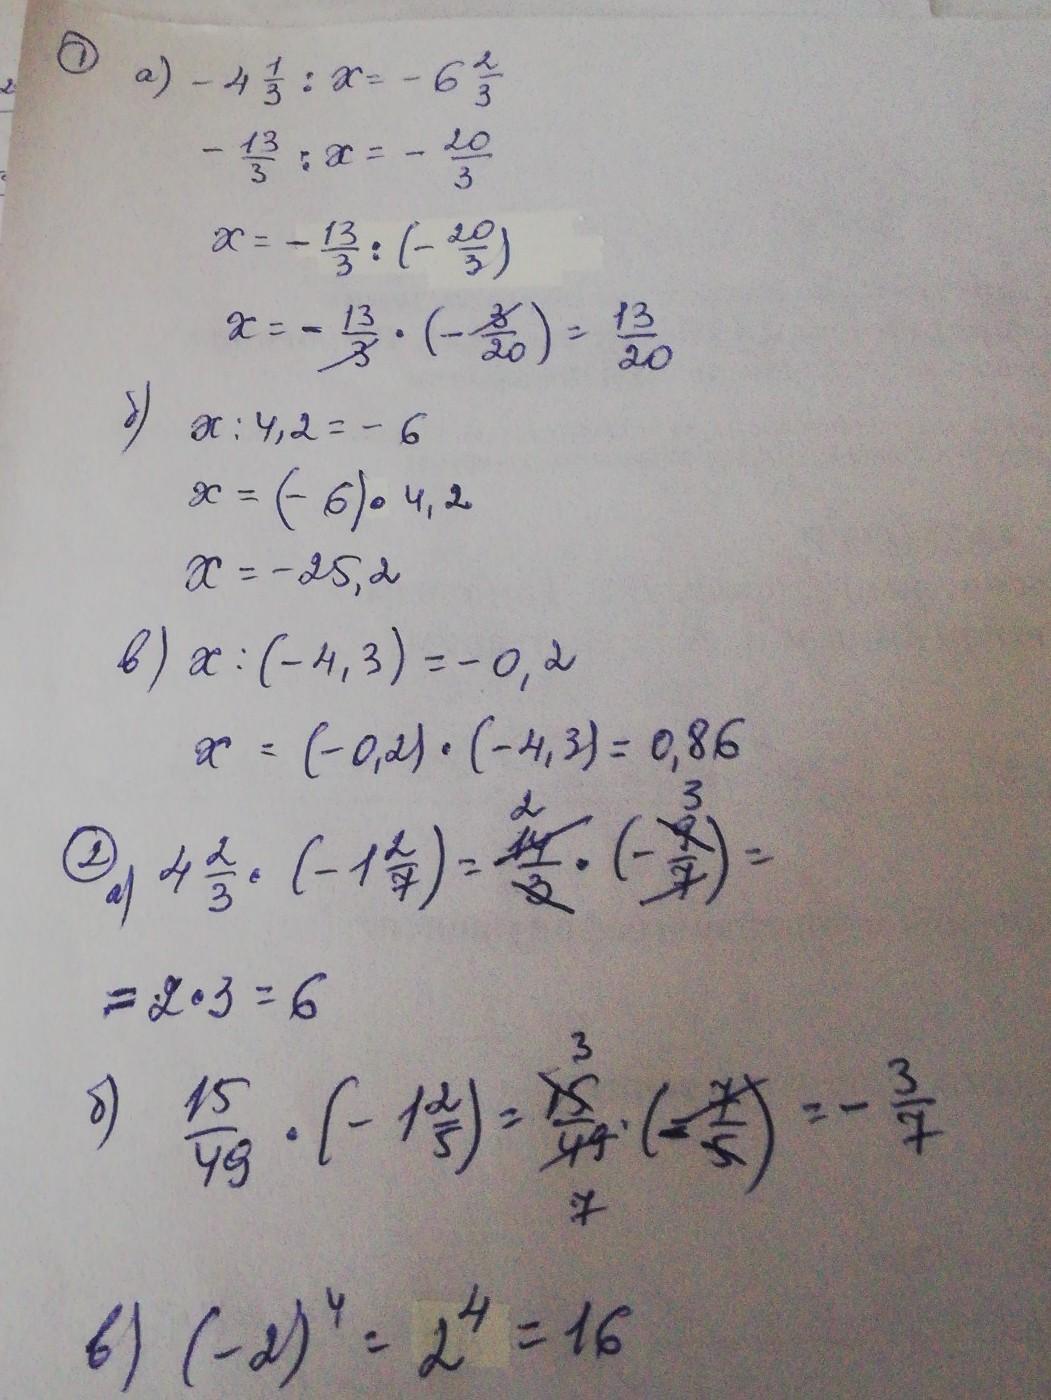 ① а) - 4 1/3 : x = - 6 2/3
- 13/3 : x = - 20/3
x = - 13/3 : (- 20/3)
x = - 13/3 · (- 3/20) = 13/20
б) x : 4,2 = - 6
x = (- 6) · 4,2
x = - 25,2
в) x : (- 4,3) = - 0,2
x = (- 0,2) · (- 4,3) = 0,86
② а) 4 2/3 · (- 1 2/7) = 14/3 · (- 9/7) =
2 3
= 2 · 3 = 6
б) 15/49 · (- 1 2/5) = 15/49 · (- 7/5) = - 3/7
3
7
в) (-2)^4 = 2^4 = 16